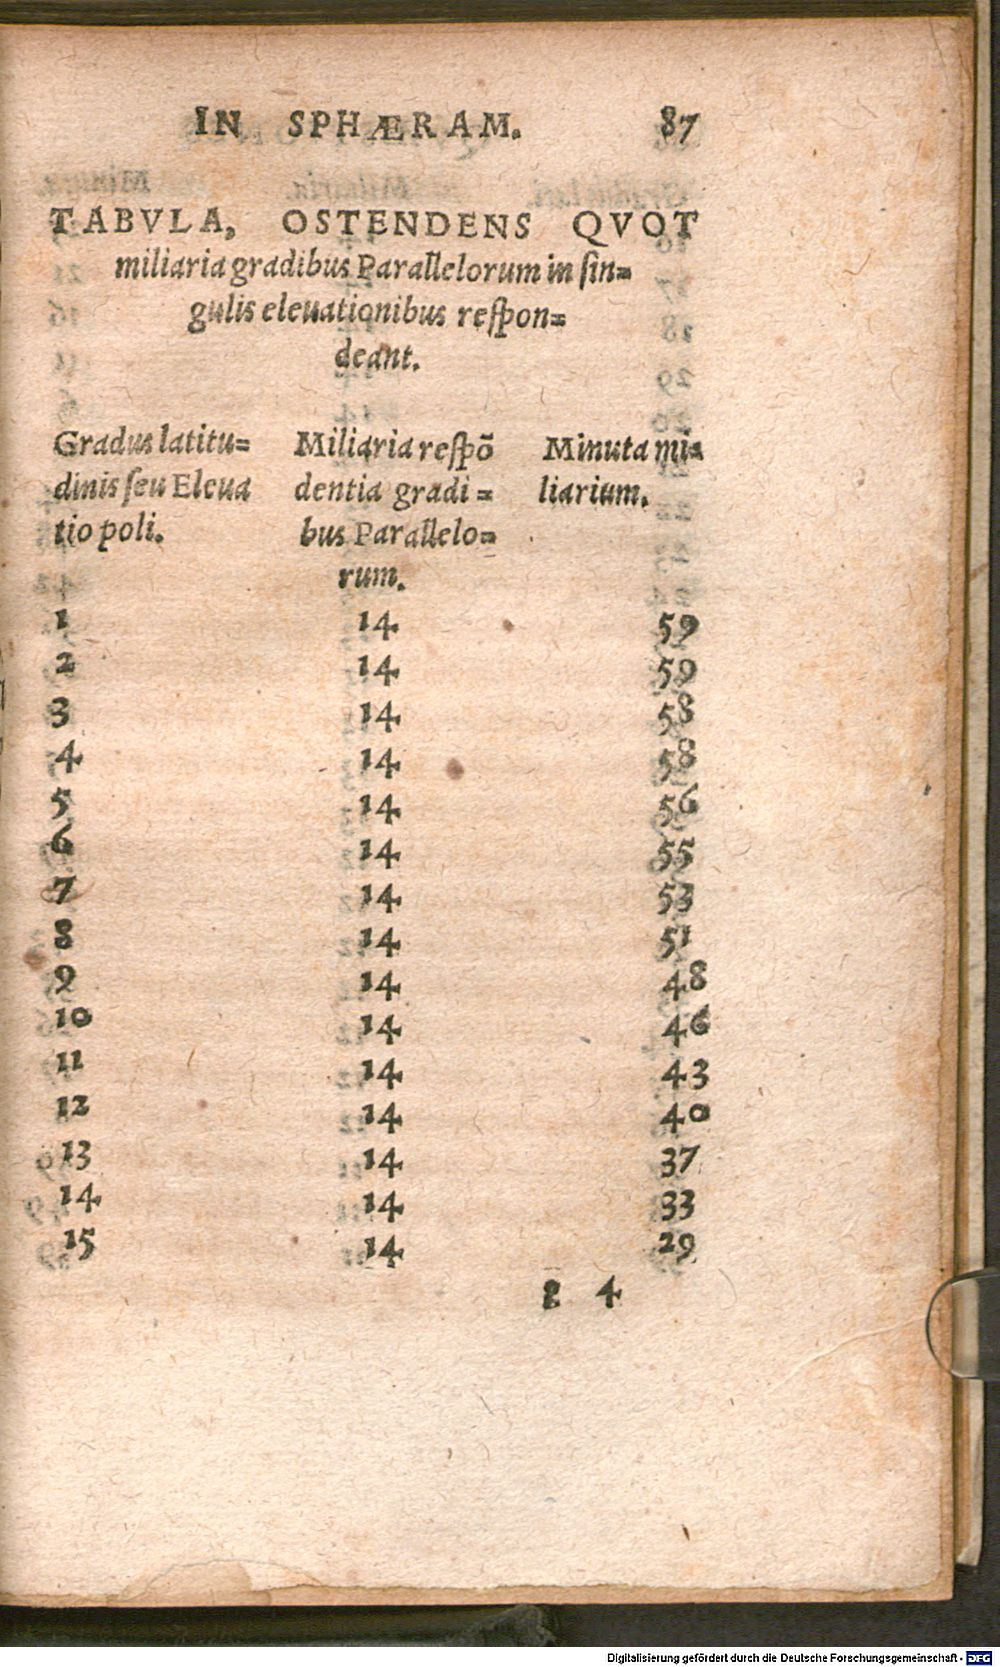 IN SPHÆRAM. 87
TABVLA, OSTENDENS QVOT
miliaria gradibus Parallelorum in ſin=
gulis eleuationibus reſpon=
deant.
Gradus latitu= Miliaria reſpō Minuta mi=
dinis ſeu Eleua dentia gradi= liarium.
tio poli. bus Parallelo=
rum.
1 14 59
2 14 59
3 14 58
4 14 58
5 14 56
6 14 55
7 14 53
8 14 51
9 14 48
10 14 46
11 14 43
12 14 40
13 14 37
14 14 33
15 14 29
4
Digitalisierung gefördert durch die Deutsche Forschungsgemeinschaft - DFG